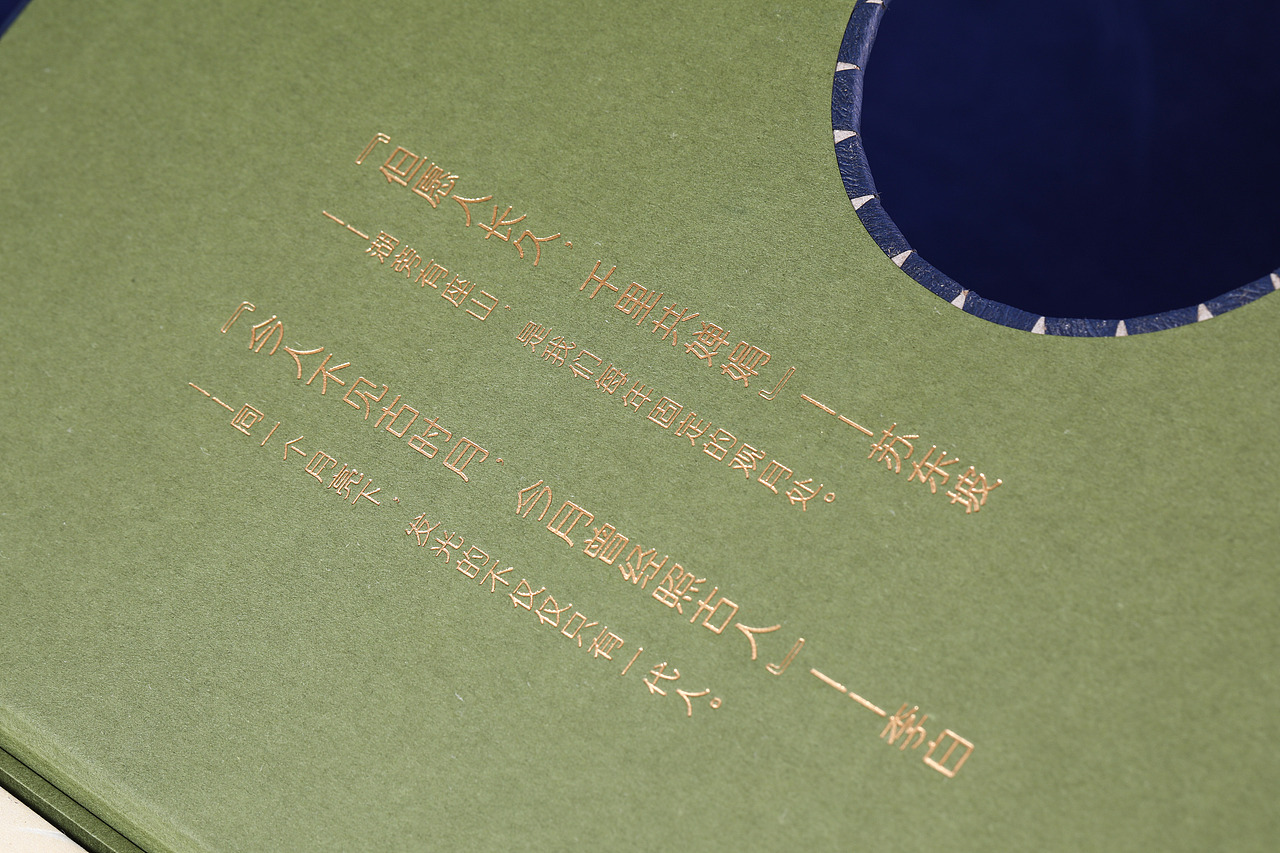 『但愿人长久，千里共婵娟』——苏东坡
——湖旁有座山，是我们每年固定的观月处。
『今人不见古时月，今月曾经照古人』——李白
——同一个月亮下，发光的不仅仅只有一代人。